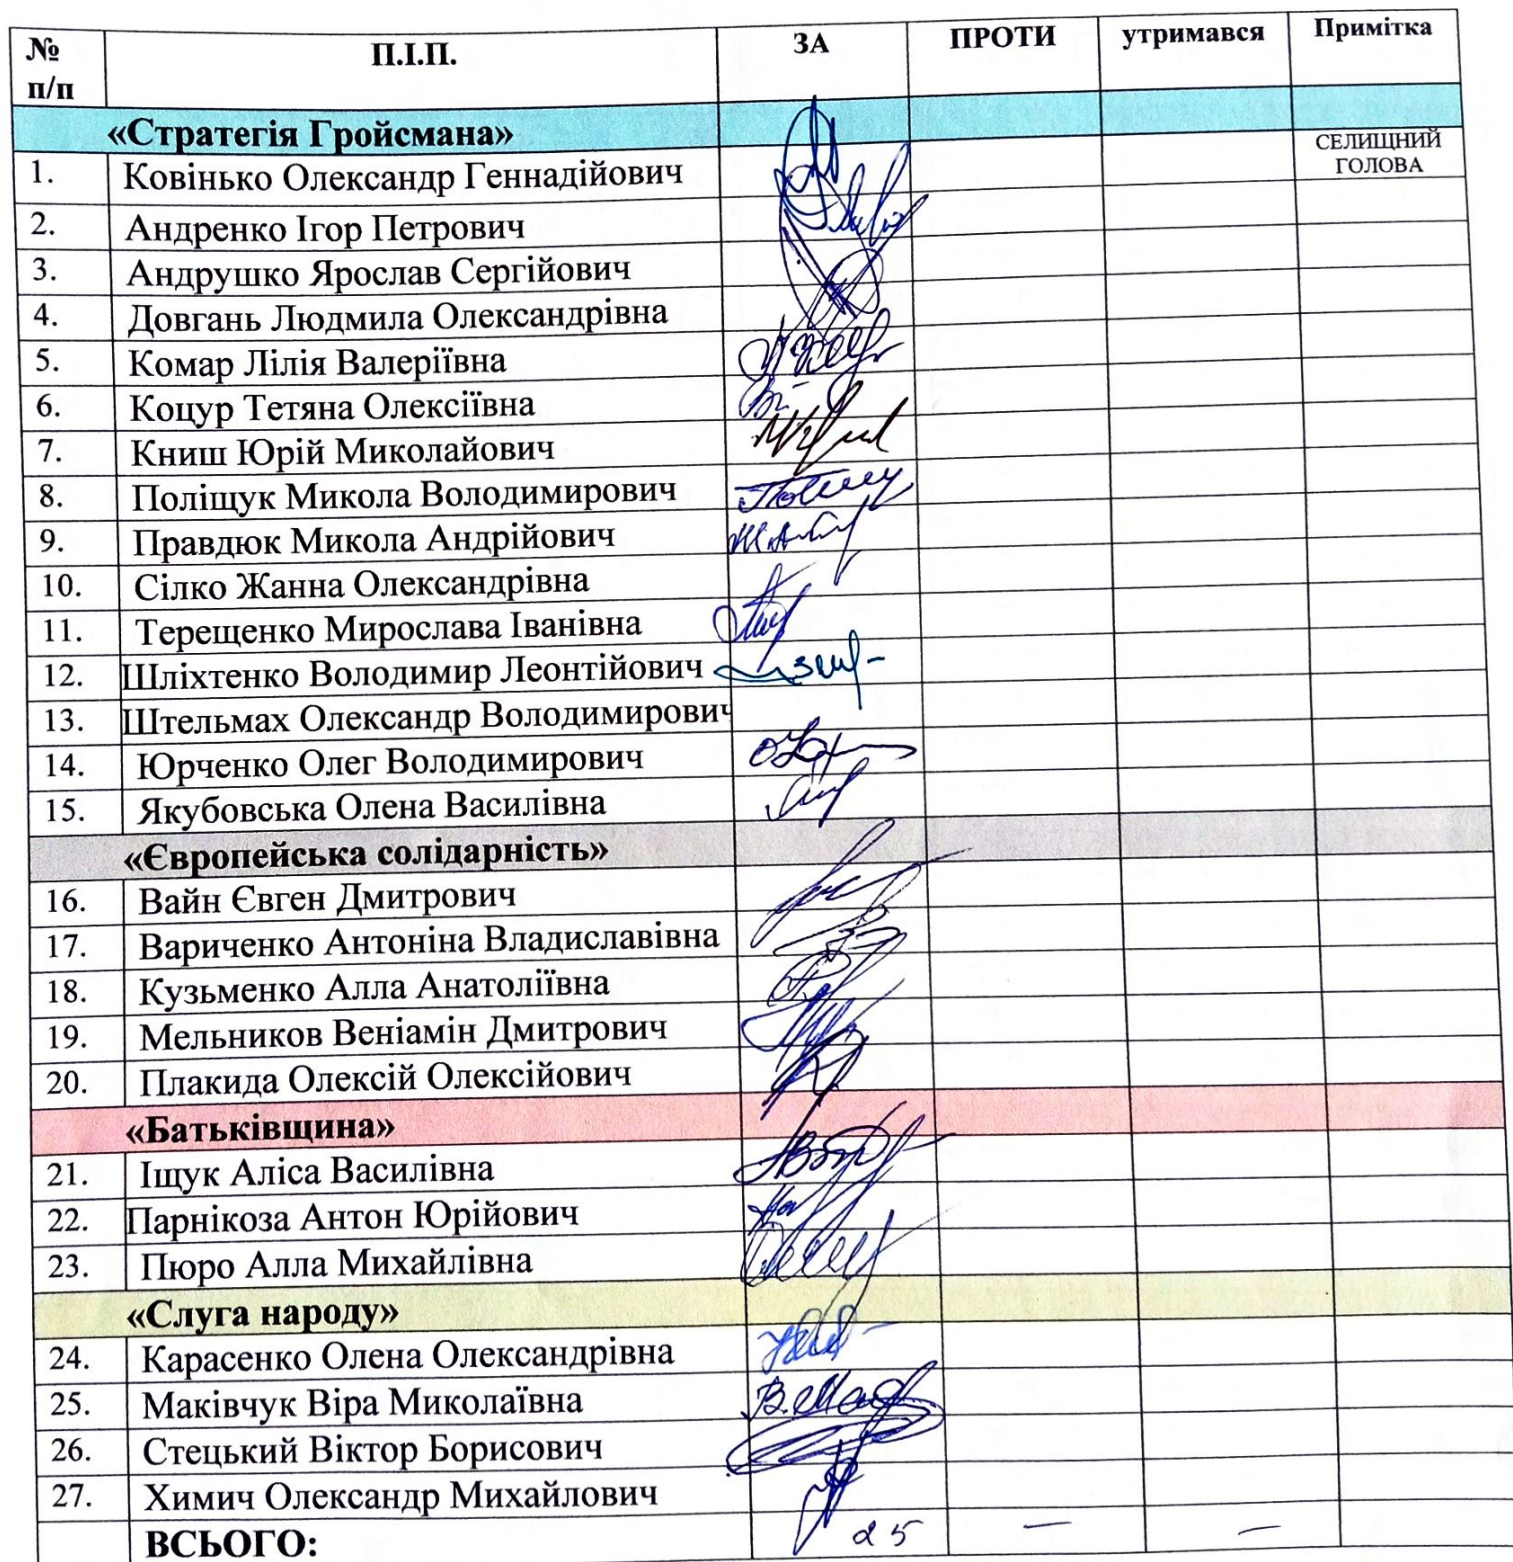 № п/п П.І.П. ЗА ПРОТИ утримався Примітка
«Стратегія Гройсмана»
1. Ковінько Олександр Геннадійович СЕЛИЩНИЙ ГОЛОВА
2. Андренко Ігор Петрович
3. Андрушко Ярослав Сергійович
4. Довгань Людмила Олександрівна
5. Комар Лілія Валеріївна
6. Коцур Тетяна Олексіївна
7. Книш Юрій Миколайович
8. Поліщук Микола Володимирович
9. Правдюк Микола Андрійович
10. Сілко Жанна Олександрівна
11. Терещенко Мирослава Іванівна
12. Шліхтенко Володимир Леонтійович
13. Штельмах Олександр Володимирович
14. Юрченко Олег Володимирович
15. Якубовська Олена Василівна
«Європейська солідарність»
16. Вайн Євген Дмитрович
17. Вариченко Антоніна Владиславівна
18. Кузьменко Алла Анатоліївна
19. Мельников Веніамін Дмитрович
20. Плакида Олексій Олексійович
«Батьківщина»
21. Іщук Аліса Василівна
22. Парнікоза Антон Юрійович
23. Пюро Алла Михайлівна
«Слуга народу»
24. Карасенко Олена Олександрівна
25. Маківчук Віра Миколаївна
26. Стецький Віктор Борисович
27. Химич Олександр Михайлович
ВСЬОГО: 25 — —